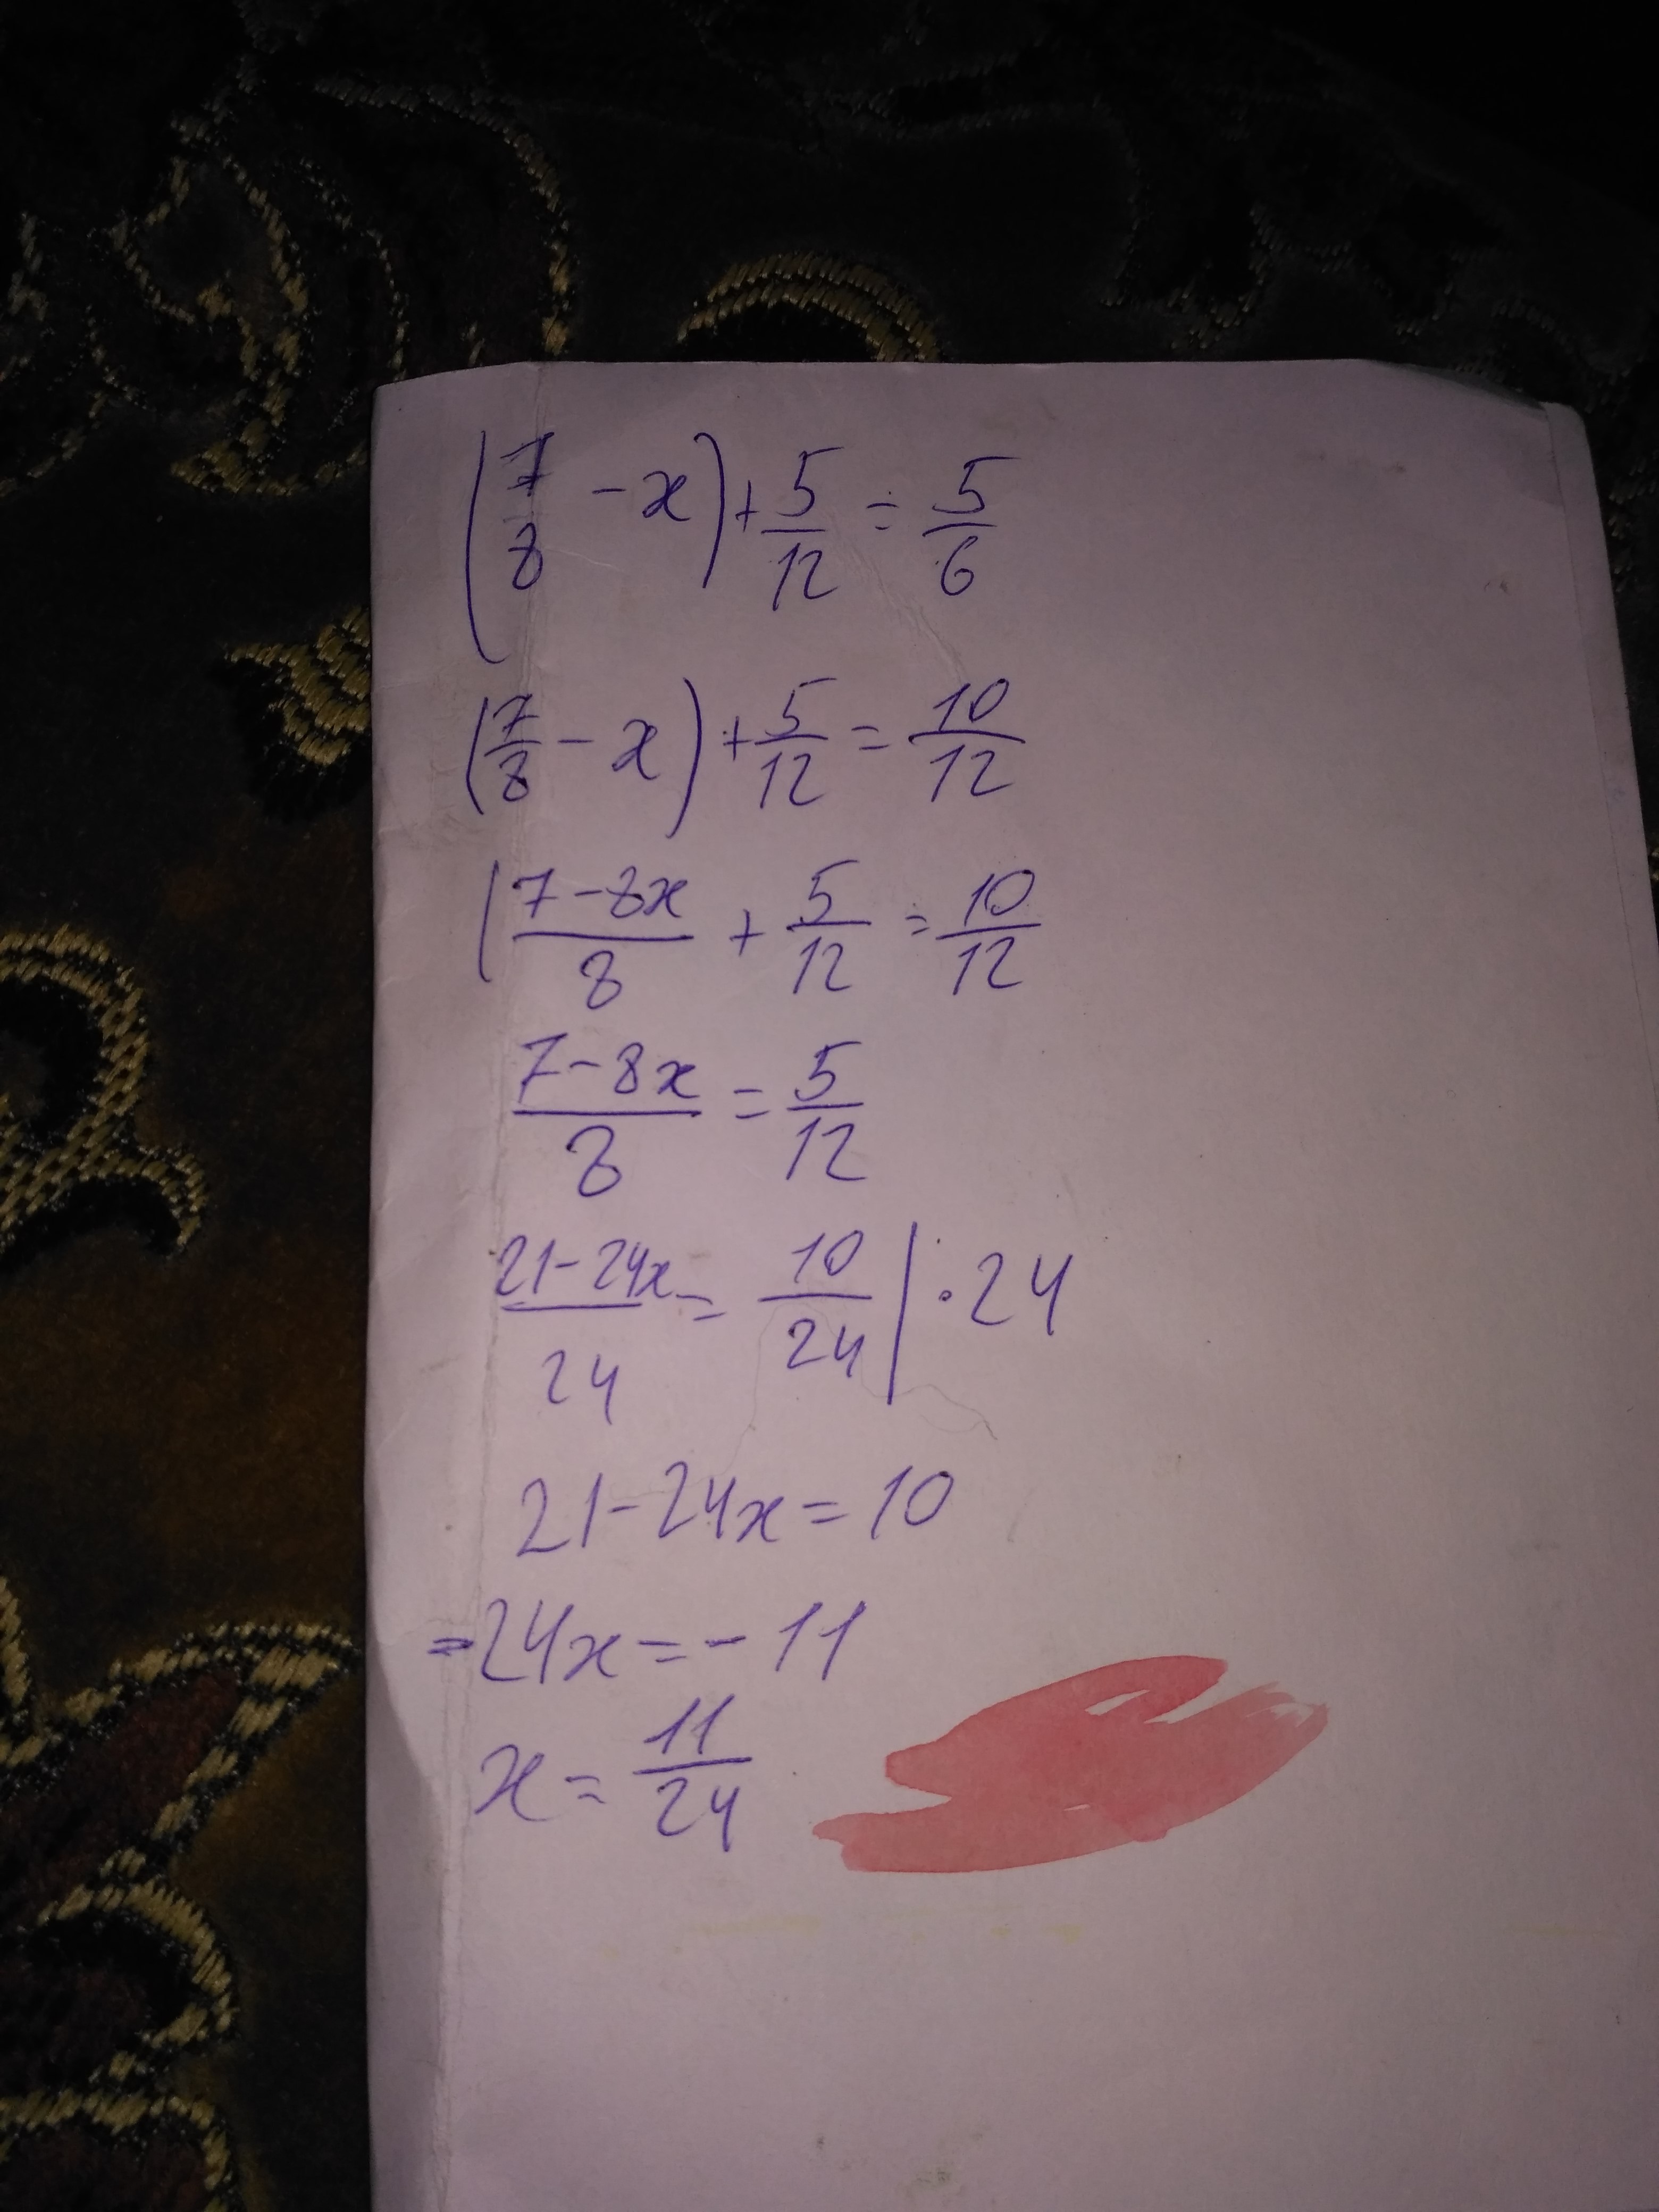 (7/8 - x) + 5/12 = 5/6
(7/8 - x) + 5/12 = 10/12
(7-8x/8 + 5/12 = 10/12
7-8x/8 = 5/12
21-24x/24 = 10/24 | · 24
21-24x=10
-24x=-11
x = 11/24